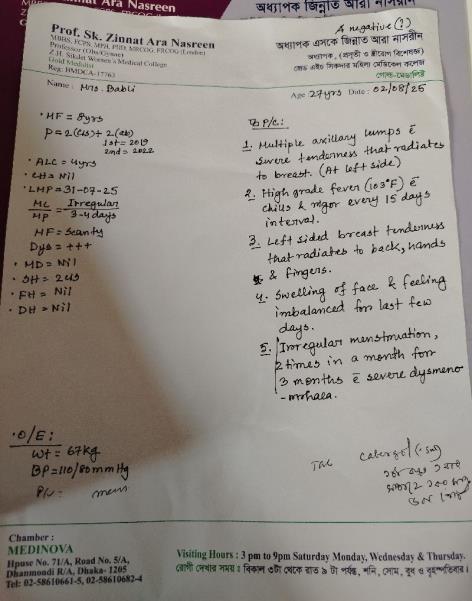 Zinnat Ara Nasreen
অধ্যাপক জিন্নাত আরা নাসরীন
Prof. Sk. Zinnat Ara Nasreen
MBBS, FCPS, MPH, PhD, MRCOG, FRCOG (London)
Professor (Obs/Gynae)
Z.H. Sikder Women's Medical College
Gold Medalist
Reg: BMDCA-17763
A negative (?)
অধ্যাপক এসকে জিন্নাত আরা নাসরীন
গোল্ড-মেডালিষ্ট
Name : Mrs. Babli
Age 27yrs Date : 02/08/25
• MF = 8yrs
P = 2(c/s) + 2(ab)
1st = 2019
2nd = 2022
• ALC = 4yrs
• CH = Nil
• LMP = 31-07-25
MC = Irregular
MP 3-4 days
MF = Scanty
Dys = +++
• MD = Nil
• SH = 2c/s
• FH = Nil
• DH = Nil
P/c:
1. Multiple axillary lumps c̄
severe tenderness that radiates
to breast. (At left side)
2. High grade fever (103°F) c̄
chills & rigor every 15 days
interval.
3. Left sided breast tenderness
that radiates to back, hands
& fingers.
4. Swelling of face & feeling
imbalanced for last few
days.
5. Irregular menstruation,
2 times in a month for
3 months c̄ severe dysmeno
-rrhoea.
• O/E:
Wt = 67kg
BP = 110/80 mmHg
P/v:
Tab
Chamber :
MEDINOVA
House No. 71/A, Road No. 5/A,
Dhanmondi R/A, Dhaka- 1205
Tel: 02-58610661-5, 02-58610682-4
Visiting Hours : 3 pm to 9pm Saturday Monday, Wednesday & Thursday.
রোগী দেখার সময় : বিকাল ৩টা থেকে রাত ৯ টা পর্যন্ত, শনি, সোম, বুধ ও বৃহস্পতিবার।